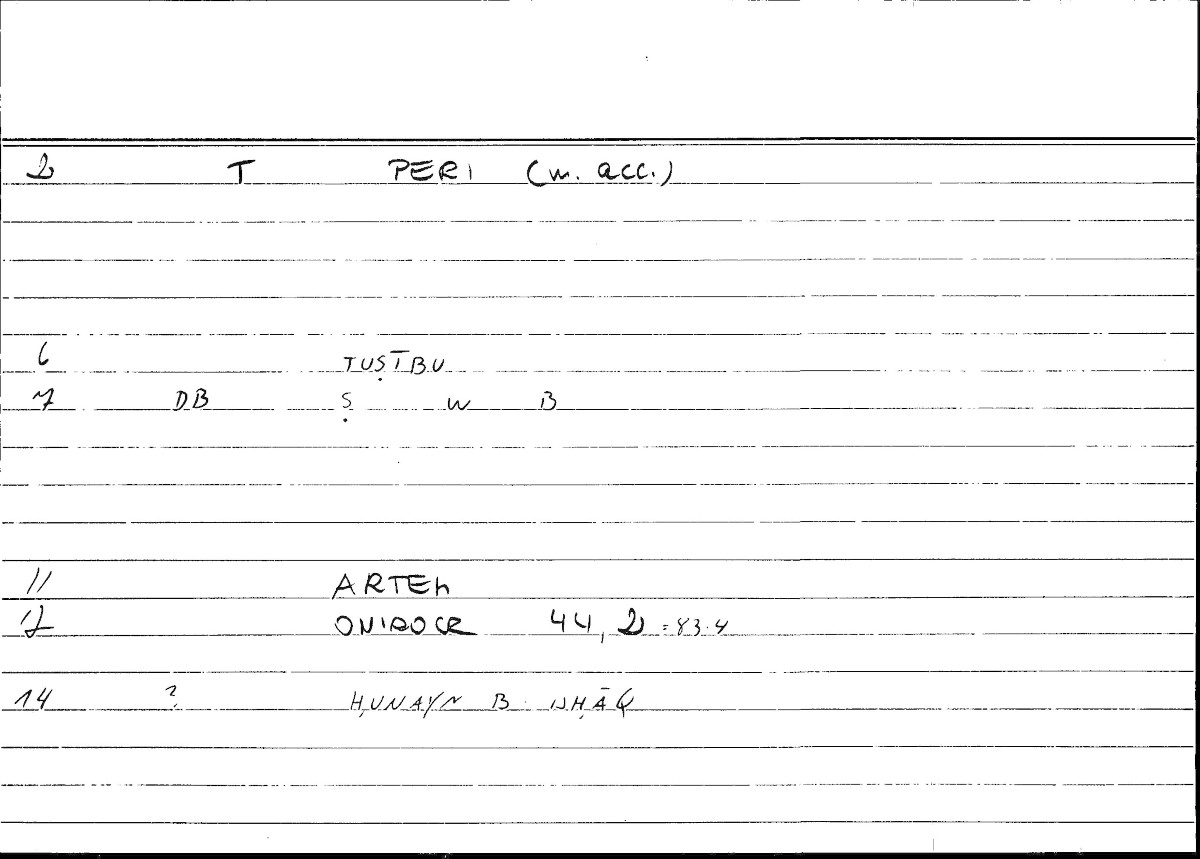 2 T PERI (m. acc.)
6 TUṢĪBU
7 DB Ṣ W B
11 ARTEM
12 ONIROCR 44, 2 = 83.4
14 ? ḤUNAYN B. ISḤĀQ